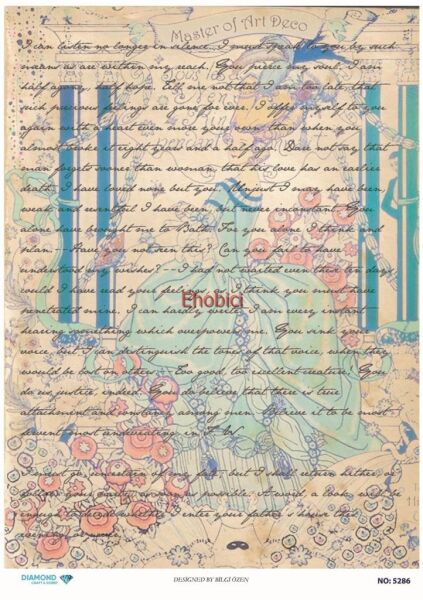 Master of Art Deco
I can listen no longer in silence. I must speak to you by such
means as are within my reach. You pierce my soul. I am
half agony, half hope. Tell me not that I am too late, that
such precious feelings are gone for ever. I offer myself to you
again with a heart even more your own than when you
almost broke it eight years and a half ago. Dare not say that
man forgets sooner than woman, that his love has an earlier
death. I have loved none but you. Unjust I may have been,
weak and resentful I have been, but never inconstant. You
alone have brought me to Bath. For you alone I think and
plan.--Have you not seen this? Can you fail to have
understood my wishes?--I had not waited even these ten days,
could I have read your feelings, as I think you must have
penetrated mine. I can hardly write. I am every instant
hearing something which overpowers me. You sink your
voice, but I can distinguish the tones of that voice, when they
would be lost on others.--Too good, too excellent creature! You
do us justice, indeed. You do believe that there is true
attachment and constancy among men. Believe it to be most
fervent most undeviating in F. W.
I must go, uncertain of my fate; but I shall return hither, or
follow your party, as soon as possible. A word, a look will be
enough to decide whether I enter your father's house this
evening or never.
Ehobici
DIAMOND
CRAFT & HOBBY
DESIGNED BY BİLGİ ÖZEN
NO: 5286